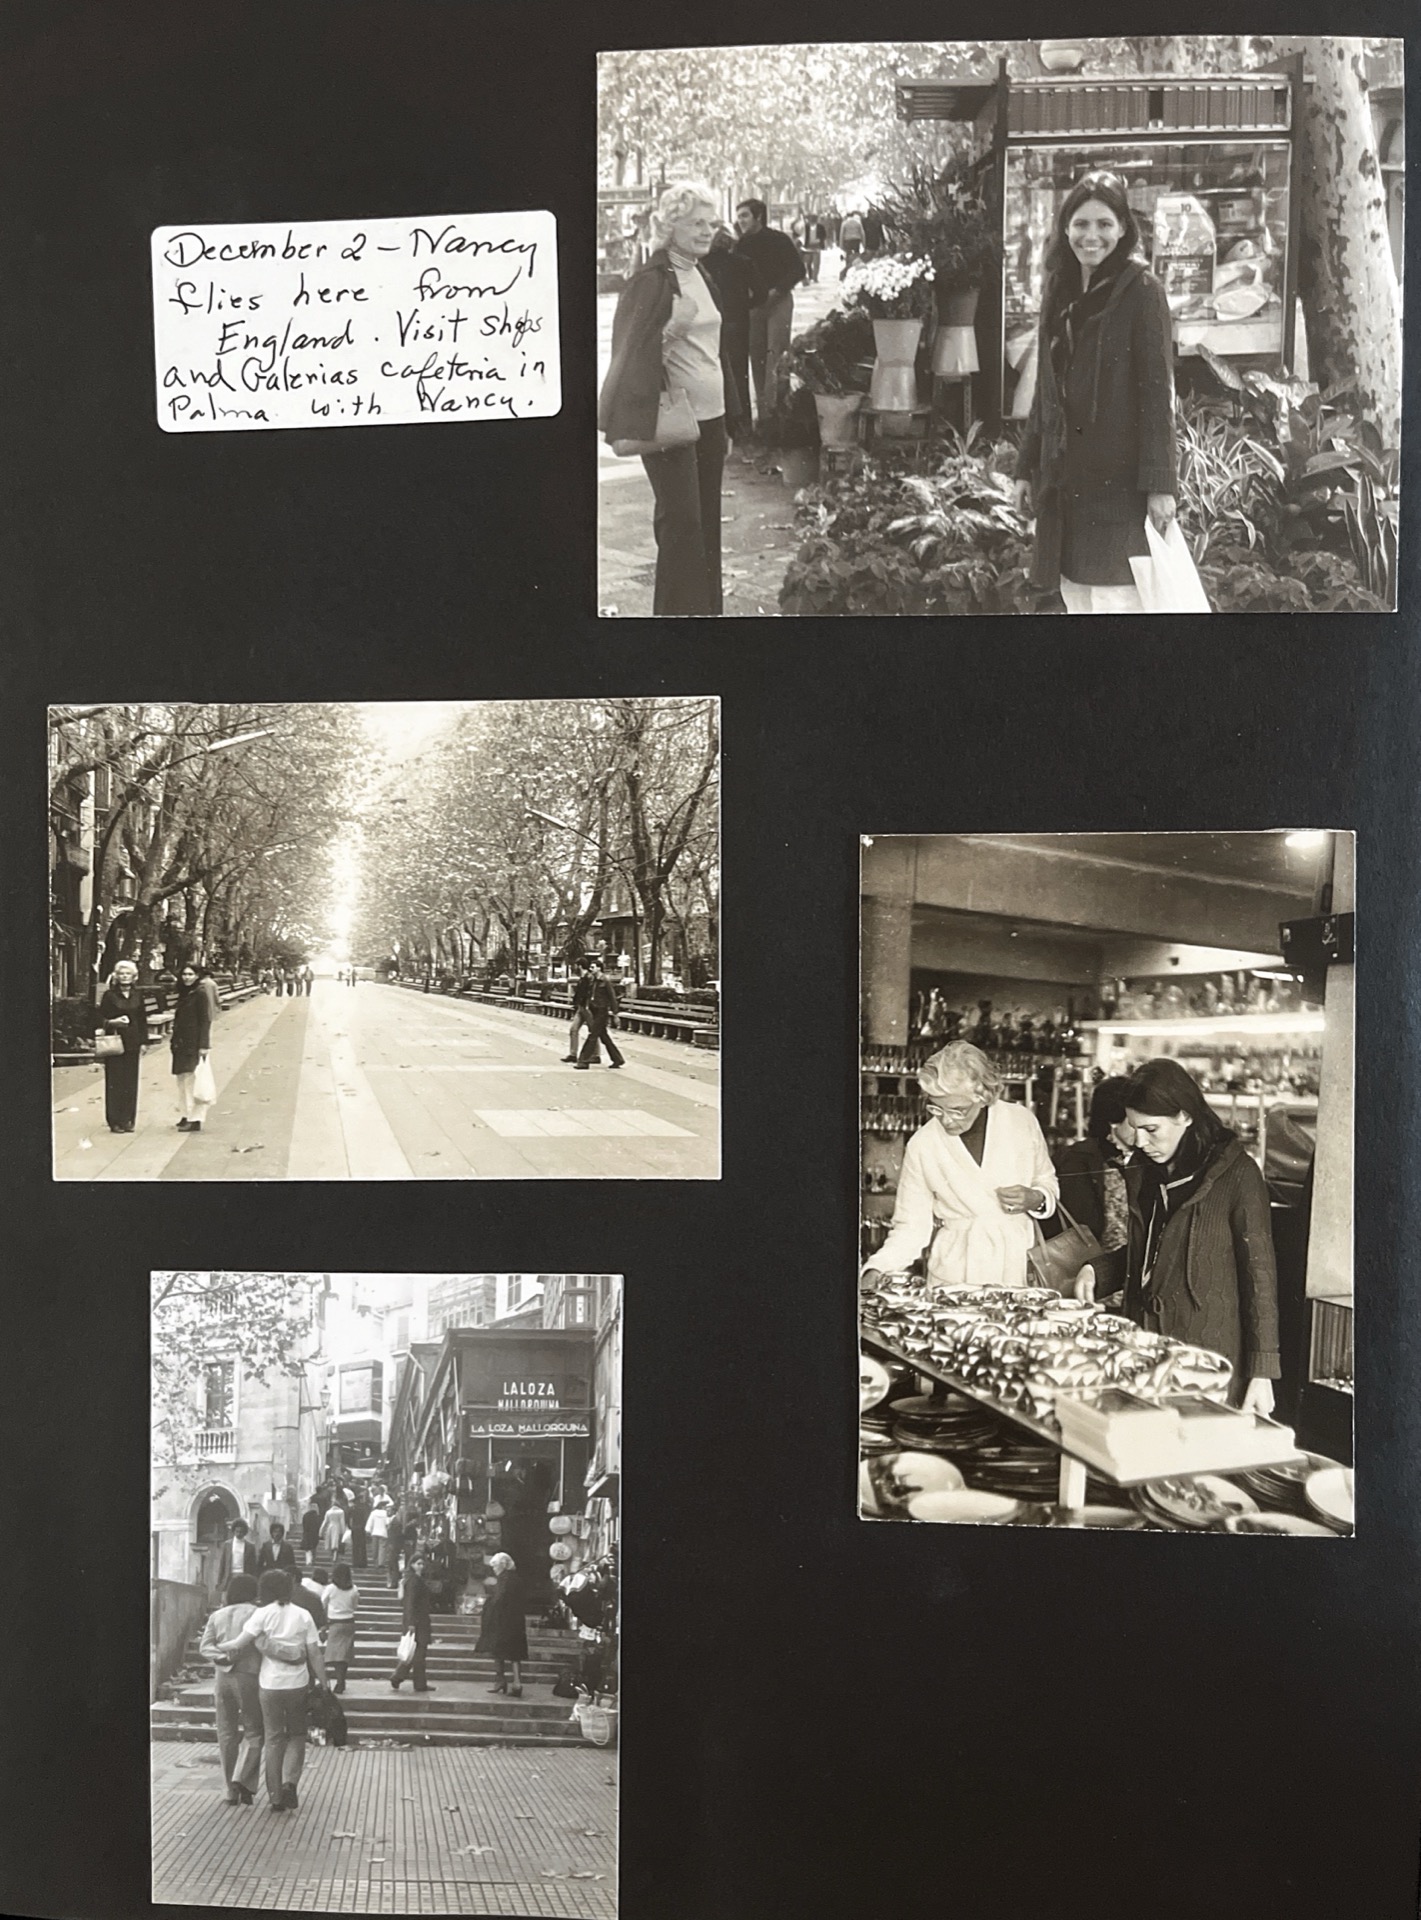 December 2 - Nancy
flies here from
England. Visit shops
and Galerias cafeteria in
Palma with Nancy.
10
LA LOZA
MALLORQUINA
LA LOZA MALLORQUINA